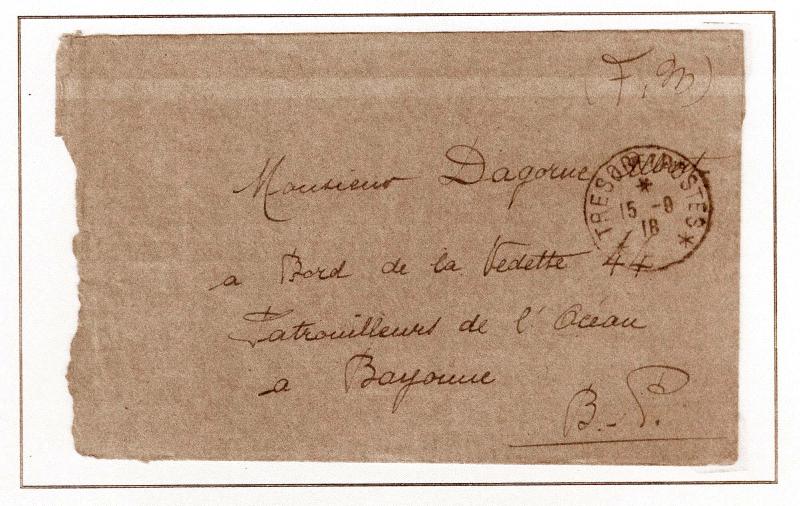 (F. M)
Monsieur Dagorne
TRESOR ET POSTES
*
15 -9
18
*
a Bord de la Vedette 44
Patrouilleurs de l'Océan
a Bayonne
B.-P.